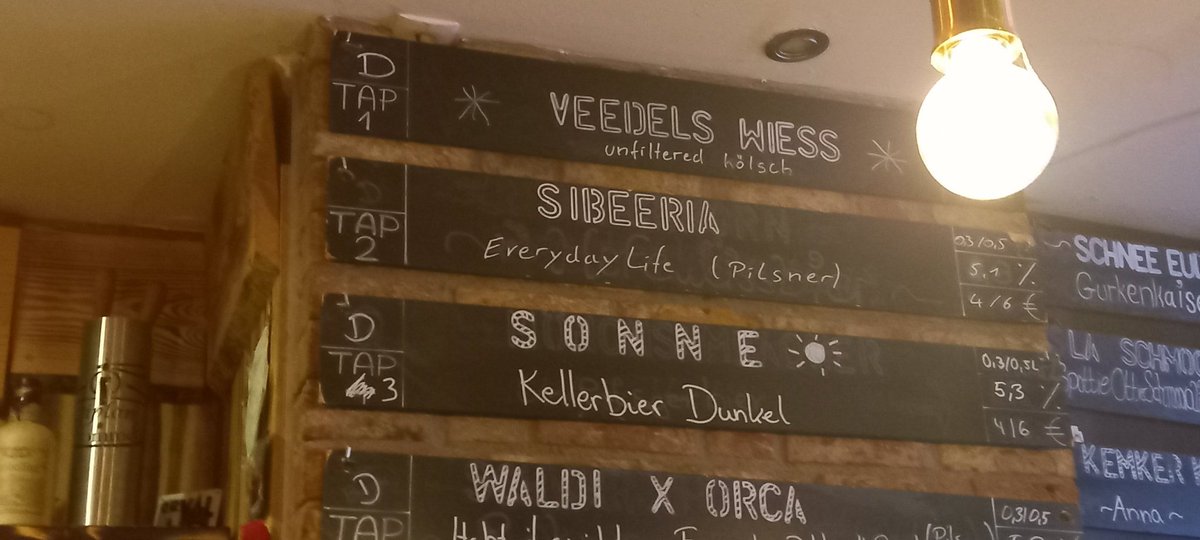 D
TAP
1
VEEDELS WIESS
unfiltered kölsch
TAP
2
SIBEERIA
Everyday Life (Pilsner)
0.3/0,5
5.1 %
4/6 €
D
TAP
3
SONNE
Kellerbier Dunkel
0,3/0,5L
5,3 %
4/6 €
D
TAP
WALDI X ORCA
0,3/0,5
SCHNEE EUL
Gurkenkais
LA SCHMOO
KEMKER
~Anna~